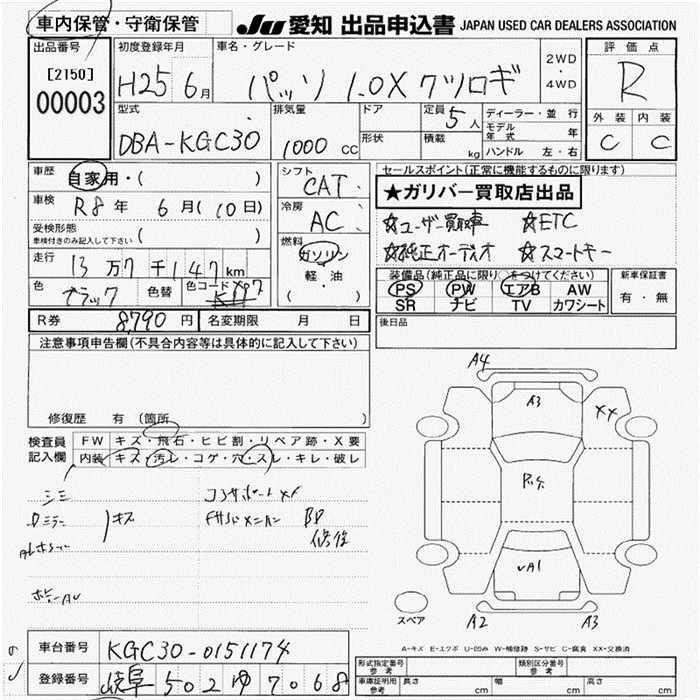 車内保管・守衛保管 JU 愛知 出品申込書 JAPAN USED CAR DEALERS ASSOCIATION
出品番号 初度登録年月 車名・グレード 2WD ・ 4WD 評価点
[2150] H25 6月 パッソ 1.0X クツロギ R
00003 型式 排気量 ドア 定員 5人 ディーラー・並行 外装 内装
DBA-KGC30 1000 cc 形状 積載 kg モデル年式 年 C C
ハンドル 左・右
車歴 自家用・( ) シフト CAT セールスポイント(正常に機能するものに限ります)
★ガリバー買取店出品
車検 R8年 6月(10日) 冷房 AC ☆ユーザー買取車 ☆ETC
受検形態 車検付きのみ記入して下さい ( ) 燃料 ガソリン ☆純正オーディオ ☆スマートキー
走行 13万7千147km 軽・油 装備品(純正品に限り○をつけてください) 新車保証書
色 ブラック 色替 色コード X07 ( ) PS PW エアB AW 有・無
SR ナビ TV カワシート
R券 8,790円 名変期限 月 日 後日品
注意事項申告欄(不具合内容等は具体的に記入して下さい)
修復歴 有 (箇所 )
検査員記入欄 FW キズ・飛石・ヒビ割・リペア跡・X要
内装 キズ・汚レ・コゲ・穴・スレ・キレ・破レ
シミ コアサポートXX
ドミラー キズ
修復
A4
A3
XX
vA1
スペア A2 A3
A-キズ E-エクボ U-凹み W-補修跡 S-サビ C-腐食 XX-交換済
車台番号 KGC30-0151174
登録番号 岐阜 502 ゆ 7068
形式指定番号 参考 類別区分番号 参考
車庫証明用 参考 長さ cm 幅 cm 高さ cm